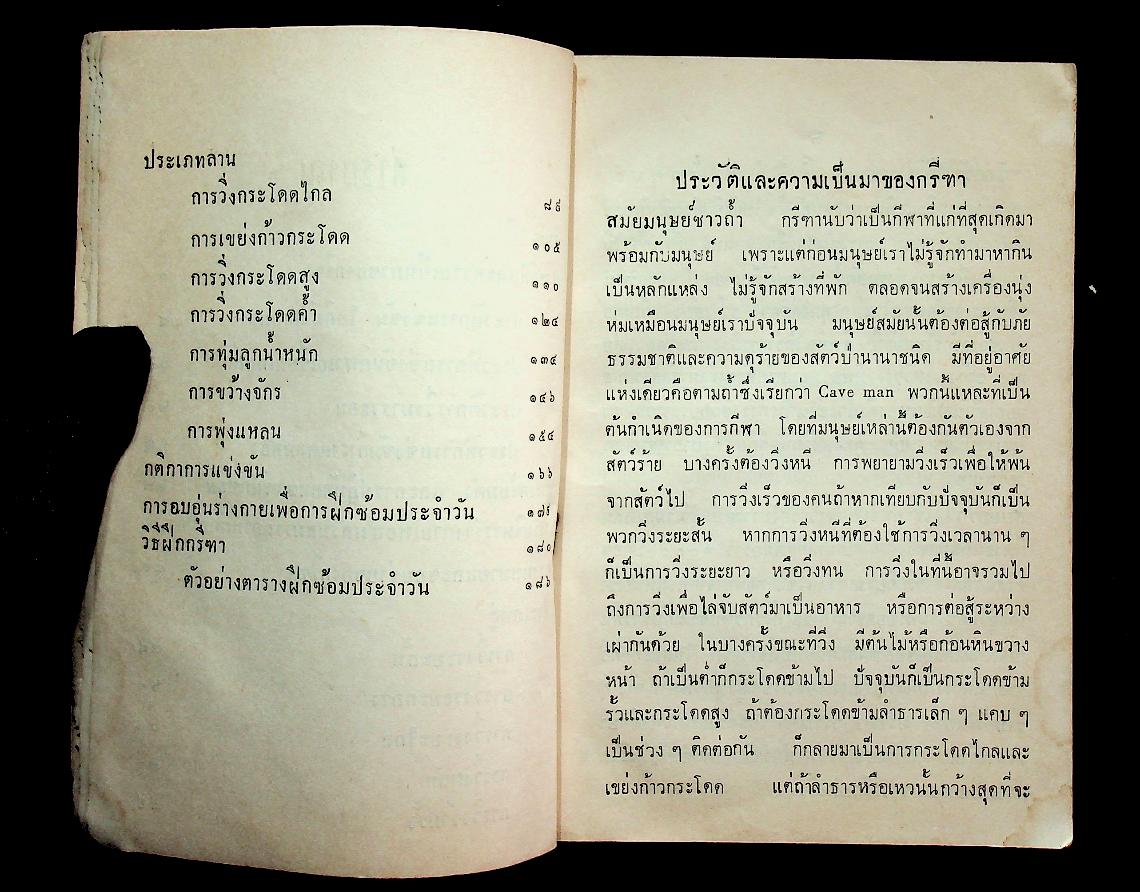 ประเภทลาน
การวิ่งกระโดดไกล ๘๕
การเขย่งก้าวกระโดด ๑๐๕
การวิ่งกระโดดสูง ๑๑๐
การวิ่งกระโดดค้ำ ๑๒๔
การทุ่มลูกน้ำหนัก ๑๓๔
การขว้างจักร ๑๔๖
การพุ่งแหลน ๑๕๔
กติกาการแข่งขัน ๑๖๖
การอบอุ่นร่างกายเพื่อการฝึกซ้อมประจำวัน
วิธีฝึกกรีฑา ๑๘๐
ตัวอย่างตารางฝึกซ้อมประจำวัน ๑๘๖
ประวัติและความเป็นมาของกรีฑา
สมัยมนุษย์ชาวถ้ำ กรีฑานับว่าเป็นกีฬาที่แก่ที่สุดเกิดมา
พร้อมกับมนุษย์ เพราะแต่ก่อนมนุษย์เราไม่รู้จักทำมาหากิน
เป็นหลักแหล่ง ไม่รู้จักสร้างที่พัก ตลอดจนสร้างเครื่องนุ่ง
ห่มเหมือนมนุษย์เราปัจจุบัน มนุษย์สมัยนั้นต้องต่อสู้กับภัย
ธรรมชาติและความดุร้ายของสัตว์ป่านานาชนิด มีที่อยู่อาศัย
แห่งเดียวคือตามถ้ำซึ่งเรียกว่า Cave man พวกนี้แหละที่เป็น
ต้นกำเนิดของการกีฬา โดยที่มนุษย์เหล่านี้ต้องกันตัวเองจาก
สัตว์ร้าย บางครั้งต้องวิ่งหนี การพยายามวิ่งเร็วเพื่อให้พ้น
จากสัตว์ไป การวิ่งเร็วของคนถ้าหากเทียบกับปัจจุบันก็เป็น
พวกวิ่งระยะสั้น หากการวิ่งหนีที่ต้องใช้การวิ่งเวลานาน ๆ
ก็เป็นการวิ่งระยะยาว หรือวิ่งทน การวิ่งในที่นี้อาจรวมไป
ถึงการวิ่งเพื่อไล่จับสัตว์มาเป็นอาหาร หรือการต่อสู้ระหว่าง
เผ่ากันด้วย ในบางครั้งขณะที่วิ่ง มีต้นไม้หรือก้อนหินขวาง
หน้า ถ้าเป็นต่ำก็กระโดดข้ามไป ปัจจุบันก็เป็นกระโดดข้าม
รั้วและกระโดดสูง ถ้าต้องกระโดดข้ามลำธารเล็ก ๆ แคบ ๆ
เป็นช่วง ๆ ติดต่อกัน ก็กลายมาเป็นการกระโดดไกลและ
เขย่งก้าวกระโดด แต่ถ้าลำธารหรือเหวนั้นกว้างสุดที่จะ